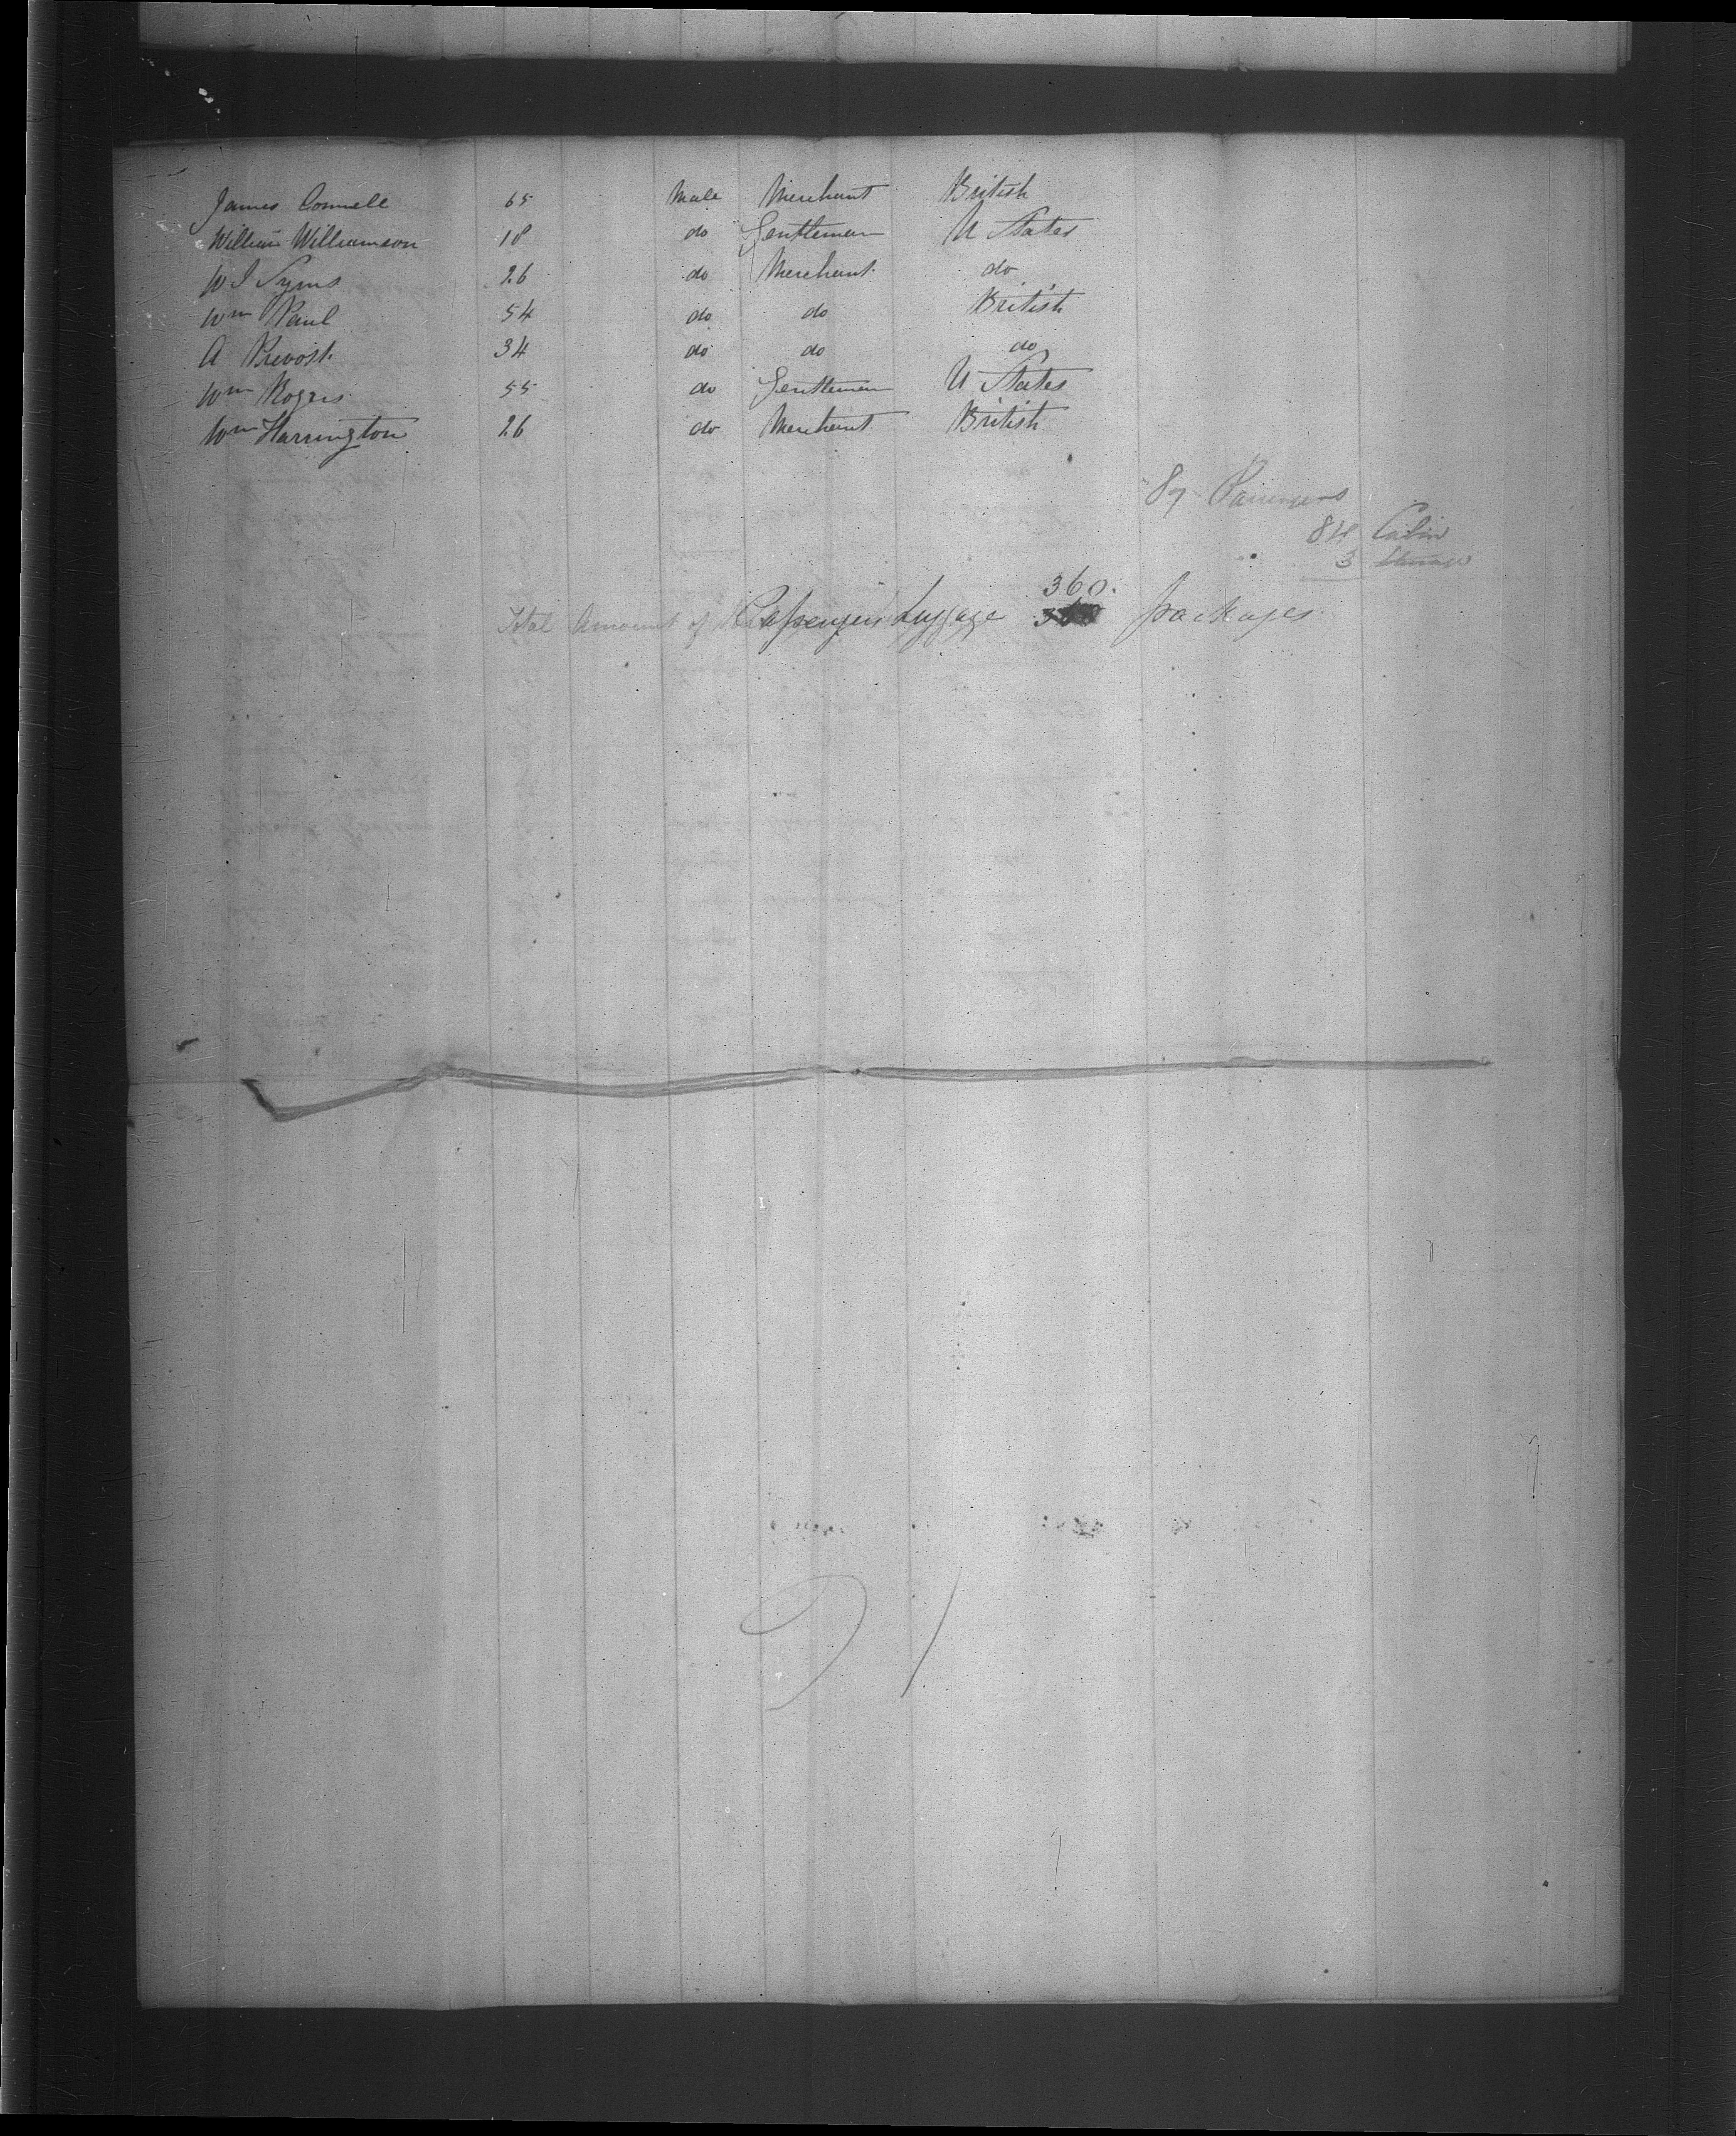 James Connell 65 Male Merchant British
William Williamson 18 do Gentleman U States
W I Syms 26 do Merchant do
Wm Paul 54 do do British
A Prevost 34 do do do
Wm Rogers 55 do Gentleman U States
Wm Harrington 26 do Merchant British
87 Passengers
84 Cabin
3 Steerage
360.
Total Amount of Passengers Luggage packages
91